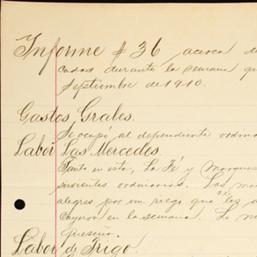 Informe # 36 acerca de
cadas durante la semana qu
Septiembre de 1910.
Gastos Grales.
Se ocupó al dependiente ordina
Labor Las Mercedes.
Tanto en esta, La Fé y Marques
sirvientes ordinarios. Las ma
alegres por un riego que les
en la semana. La m
pequeño.
Labor de Trigo.